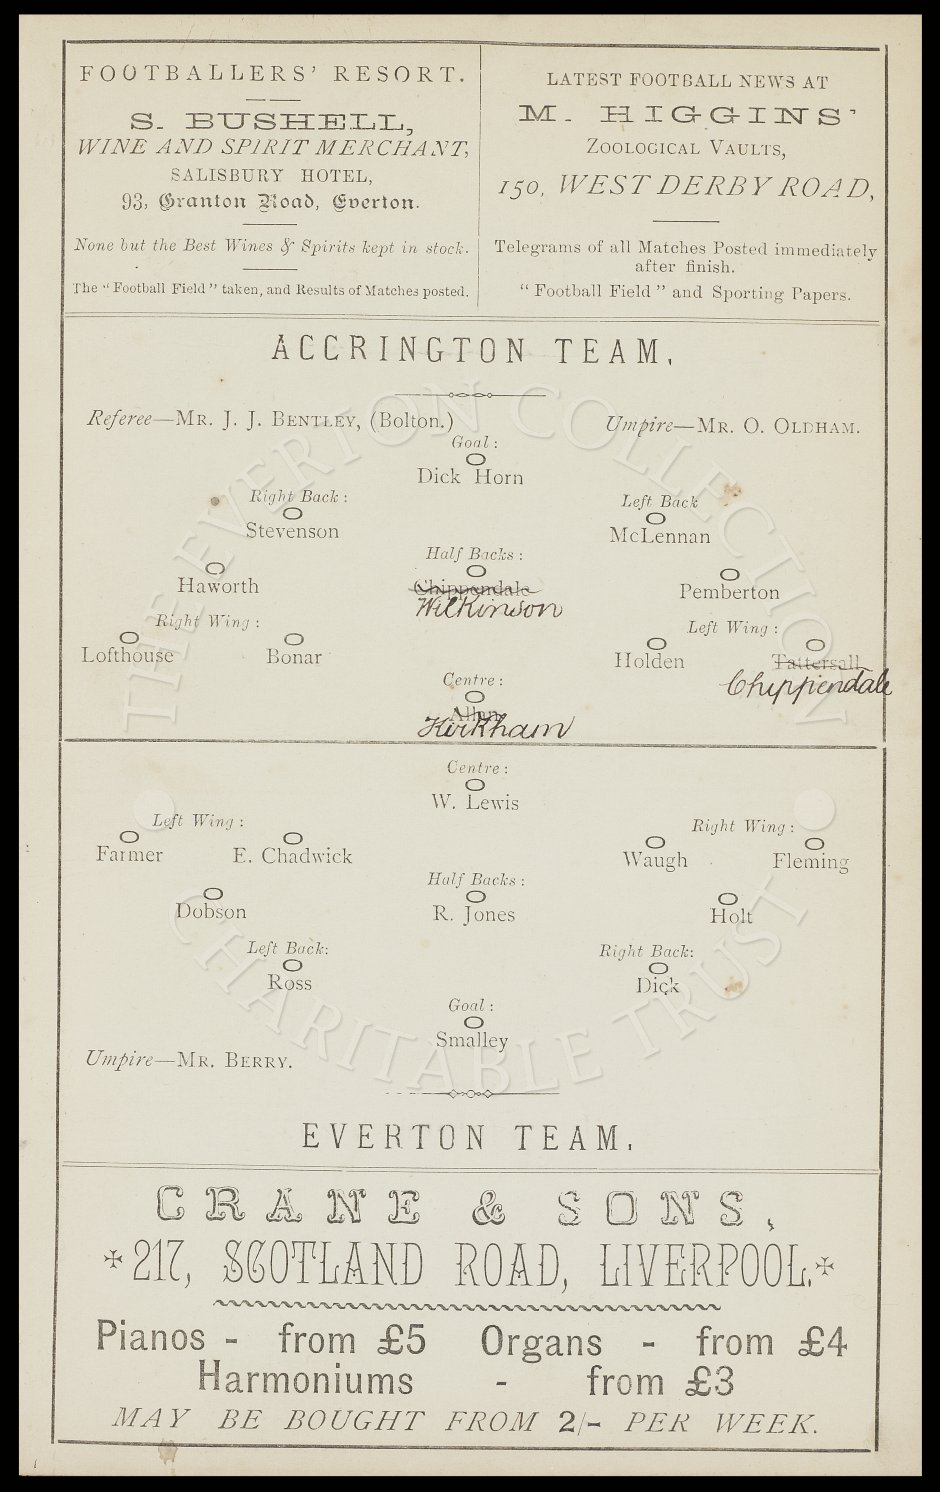 FOOTBALLERS' RESORT.
S. BUSHELL,
WINE AND SPIRIT MERCHANT,
SALISBURY HOTEL,
93, Granton Road, Everton.
None but the Best Wines & Spirits kept in stock.
The "Football Field" taken, and Results of Matches posted.
LATEST FOOTBALL NEWS AT
M. HIGGINS'
ZOOLOGICAL VAULTS,
150, WEST DERBY ROAD,
Telegrams of all Matches Posted immediately
after finish.
"Football Field" and Sporting Papers.
ACCRINGTON TEAM.
Referee—MR. J. J. BENTLEY, (Bolton.)
Umpire—MR. O. OLDHAM.
Goal:
Dick Horn
Right Back:
Left Back
Stevenson
McLennan
Half Backs:
Haworth
Chippendale
Pemberton
Wilkinson
Right Wing:
Left Wing:
Lofthouse
Bonar
Holden
Tattersall
Chippendale
Centre:
Allan
Kirkham
Centre:
W. Lewis
Left Wing:
Right Wing:
Farmer
E. Chadwick
Waugh
Fleming
Half Backs:
Dobson
R. Jones
Holt
Left Back:
Right Back:
Ross
Dick
Goal:
Smalley
Umpire—MR. BERRY.
EVERTON TEAM.
CRANE & SONS,
217, SCOTLAND ROAD, LIVERPOOL.
Pianos - from £5 Organs - from £4
Harmoniums - from £3
MAY BE BOUGHT FROM 2/- PER WEEK.
THE EVERTON COLLECTION
CHARITABLE TRUST